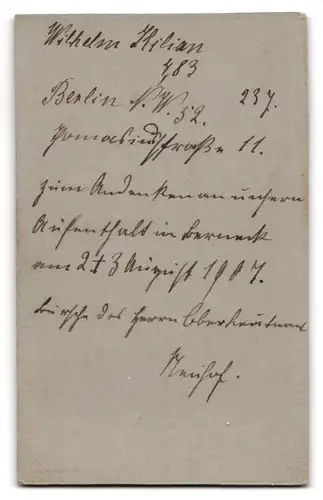 Wilhelm Kilian
483
Berlin N.W. 52. 237.
Thomasiusstraße 11.
zum Andenken an unsern
Aufenthalt in Berneck
am 2 + 3 August 1907.
Bursche des Herrn Oberleutnant
Neuhof.